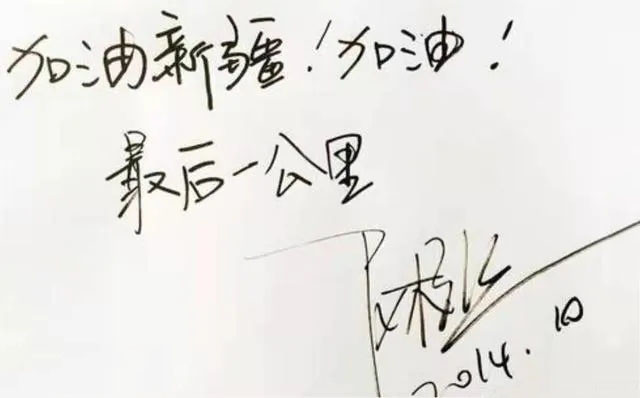 加油新疆!加油!
最后一公里
2014.10